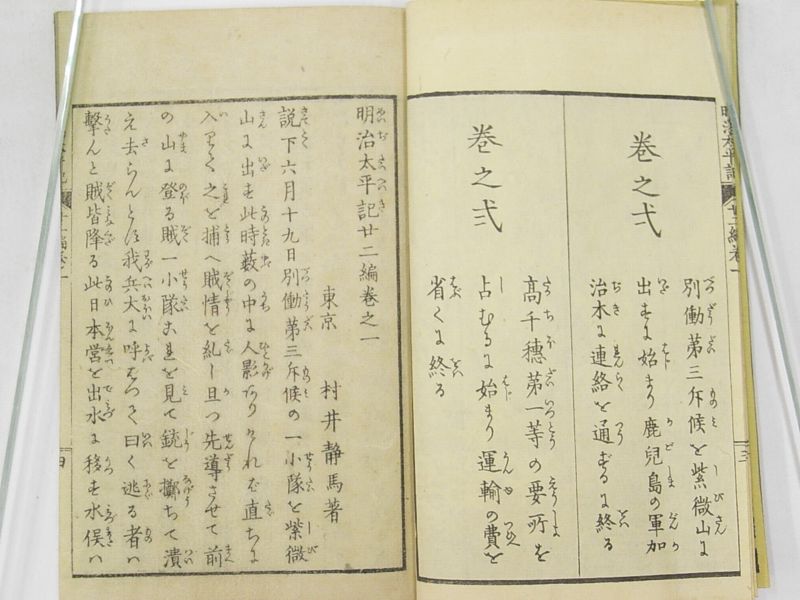 巻之弐
別働第三斥候を紫微山に
出すに始まり鹿児島の軍加
治木に連絡を通ずるに終る
巻之弐
高千穂第一等の要所を
占むるに始まり運輸の費を
省くに終る
明治太平記廿二編巻之一
東京 村井静馬著
説下六月十九日別働第三斥候の一小隊を紫微
山に出す此時藪の中に人影ありければ直ちに
入りて之を捕へ賊情を糺し且つ先導させて前
の山に登る賊一小隊これを見て銃を擲ちて潰
え去らんとす我兵大に呼はつて曰く逃る者は
撃んと賊皆降る此日本営を出水に移す水俣は